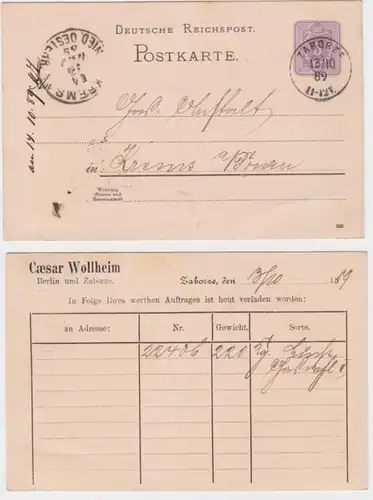 DEUTSCHE REICHSPOST.
POSTKARTE.
ZABORZE
13/10
89
11-12V.
KREMS
14
10
89
am 14.10.89
in Krems a/Donau
Wohnung
(Strasse und
Hausnummer)
Cæsar Wollheim
Berlin und Zaborze.
Zaborze, den 13/10 1889
In Folge Ihres werthen Auftrages ist heut verladen worden:
an Adresse: Nr. Gewicht. Sorte.
22406 220